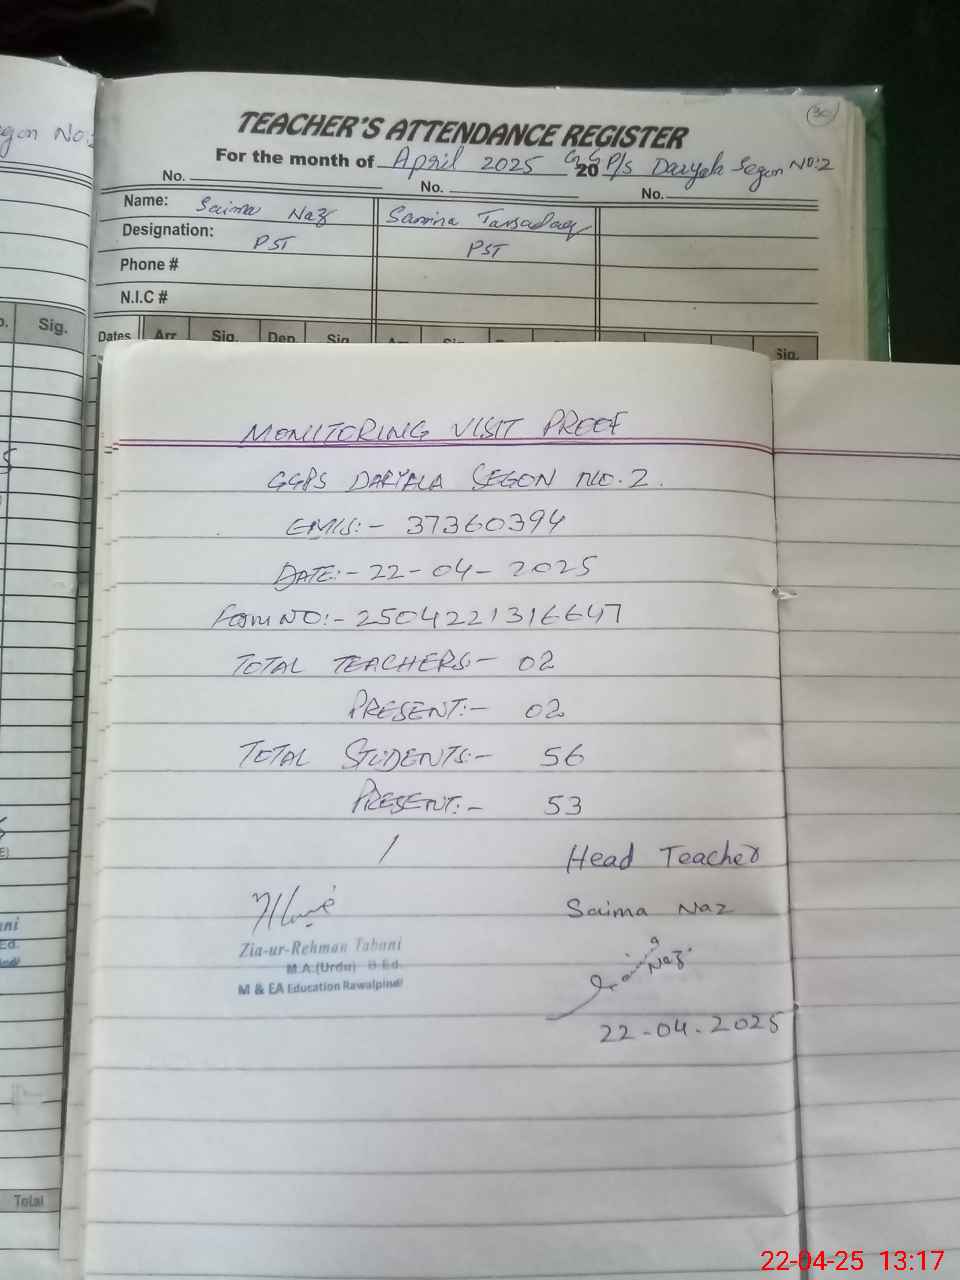 TEACHER'S ATTENDANCE REGISTER
30
For the month of April 2025 20 GGP/S Daryala Segon No:2
No. No. No.
Name: Saima Naz Samina Tassadaq
Designation: PST PST
Phone #
N.I.C #
Dates Arr Sig. Dep. Sig. Sig.
egon No:2
Sig.
Total
MONITORING VISIT PROOF
GGPS DARYALA SEGON NO.2.
EMIS:- 37360394
DATE:- 22-04-2025
Form NO:- 2504221316647
TOTAL TEACHERS:- 02
PRESENT:- 02
TOTAL STUDENTS:- 56
PRESENT:- 53
Head Teacher
Saima Naz
Zia-ur-Rehman Tabani
M.A.(Urdu) B.Ed.
M & EA Education Rawalpindi
Saima Naz
22-04-2025
22-04-25 13:17